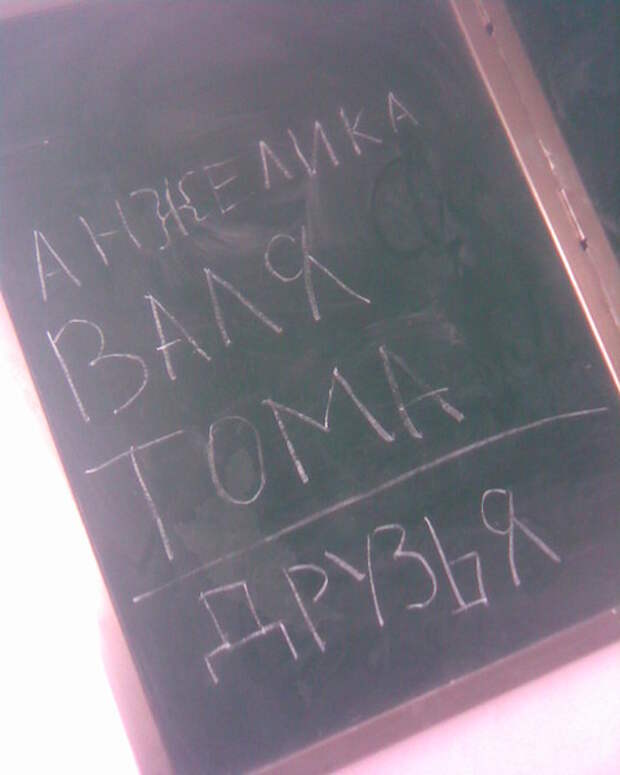 АНЖЕЛИКА
ВАЛЯ
ТОМА
ДРУЗЬЯ